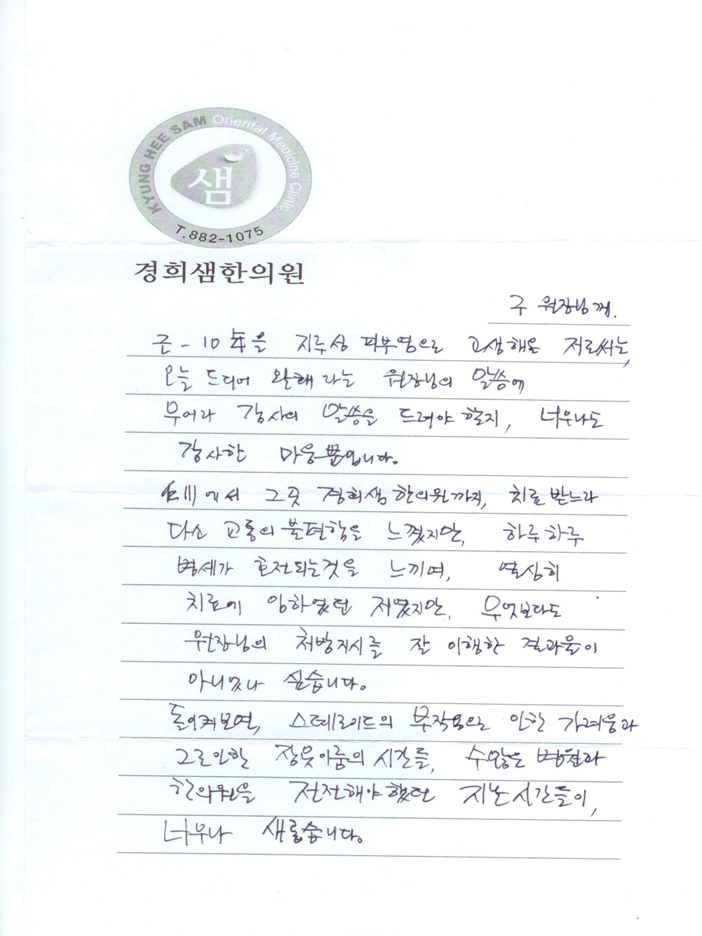 KYUNG HEE SAM Oriental Medicine Clinic
샘
T.882-1075
경희샘한의원
구 원장님께.
근 - 10年을 지루성 피부염으로 고생해온 저로써는,
오늘 드디어 완쾌 라는 원장님의 말씀에
무어라 감사의 말씀을 드려야 할지, 너무나도
감사한 마음뿐입니다.
에서 그곳 경희샘한의원까지, 치료 받느라
다소 교통의 불편함을 느꼈지만, 하루하루
병세가 호전되는것을 느끼며, 열심히
치료에 임하였던 저였지만, 무엇보다도
원장님의 처방지시를 잘 이행한 결과물이
아니었나 싶습니다.
돌이켜보면, 스테로이드의 부작용으로 인한 가려움과
그로인한 잠못이룸의 시간들, 수많은 병원과
한의원을 전전해야했던 지난시간들이,
너무나 새롭습니다.